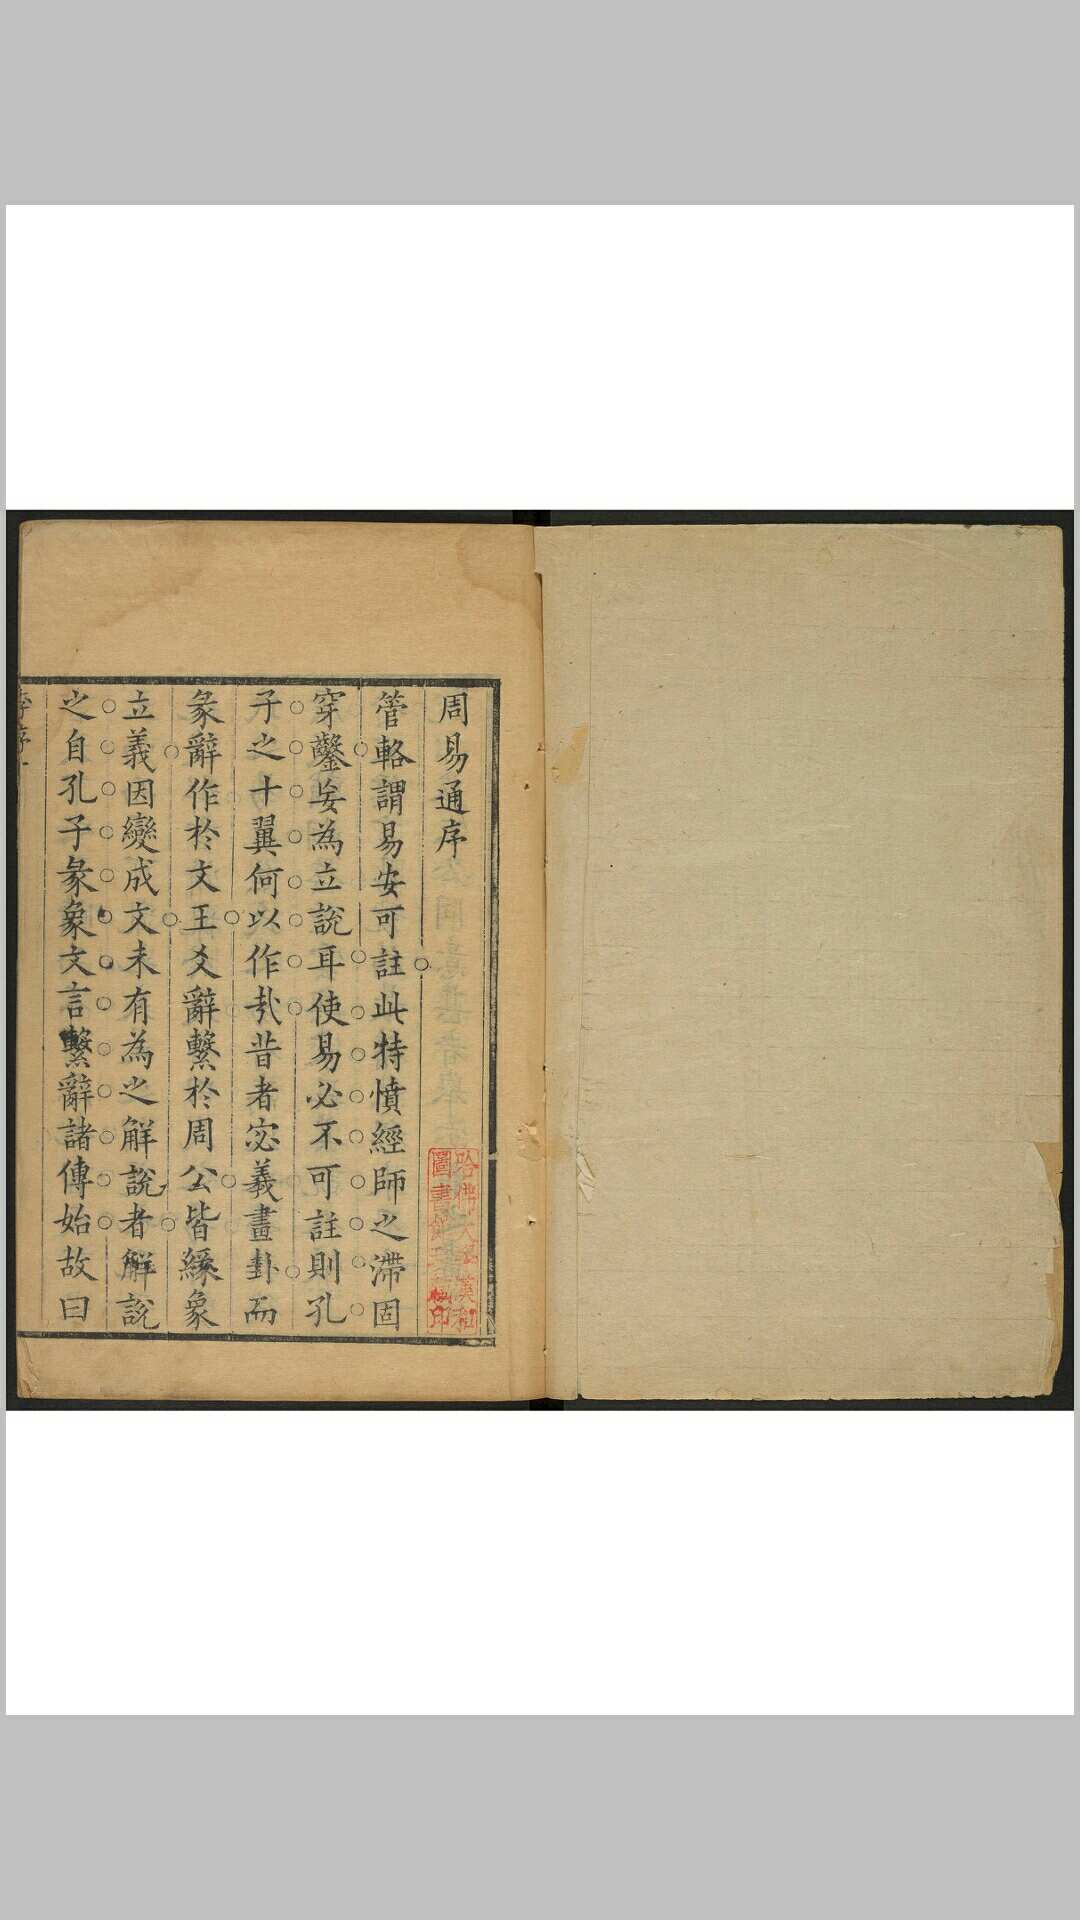 周易通序
管輅謂易安可註此特憤經師之滯固
穿鑿妄為立說耳使易必不可註則孔
子之十翼何以作㢤昔者宓義畫卦而
彖辭作於文王爻辭繫於周公皆緣象
立義因變成文未有為之解說者解說
之自孔子彖象文言繫辭諸傳始故曰
哈佛大學漢和
圖書館珍藏印